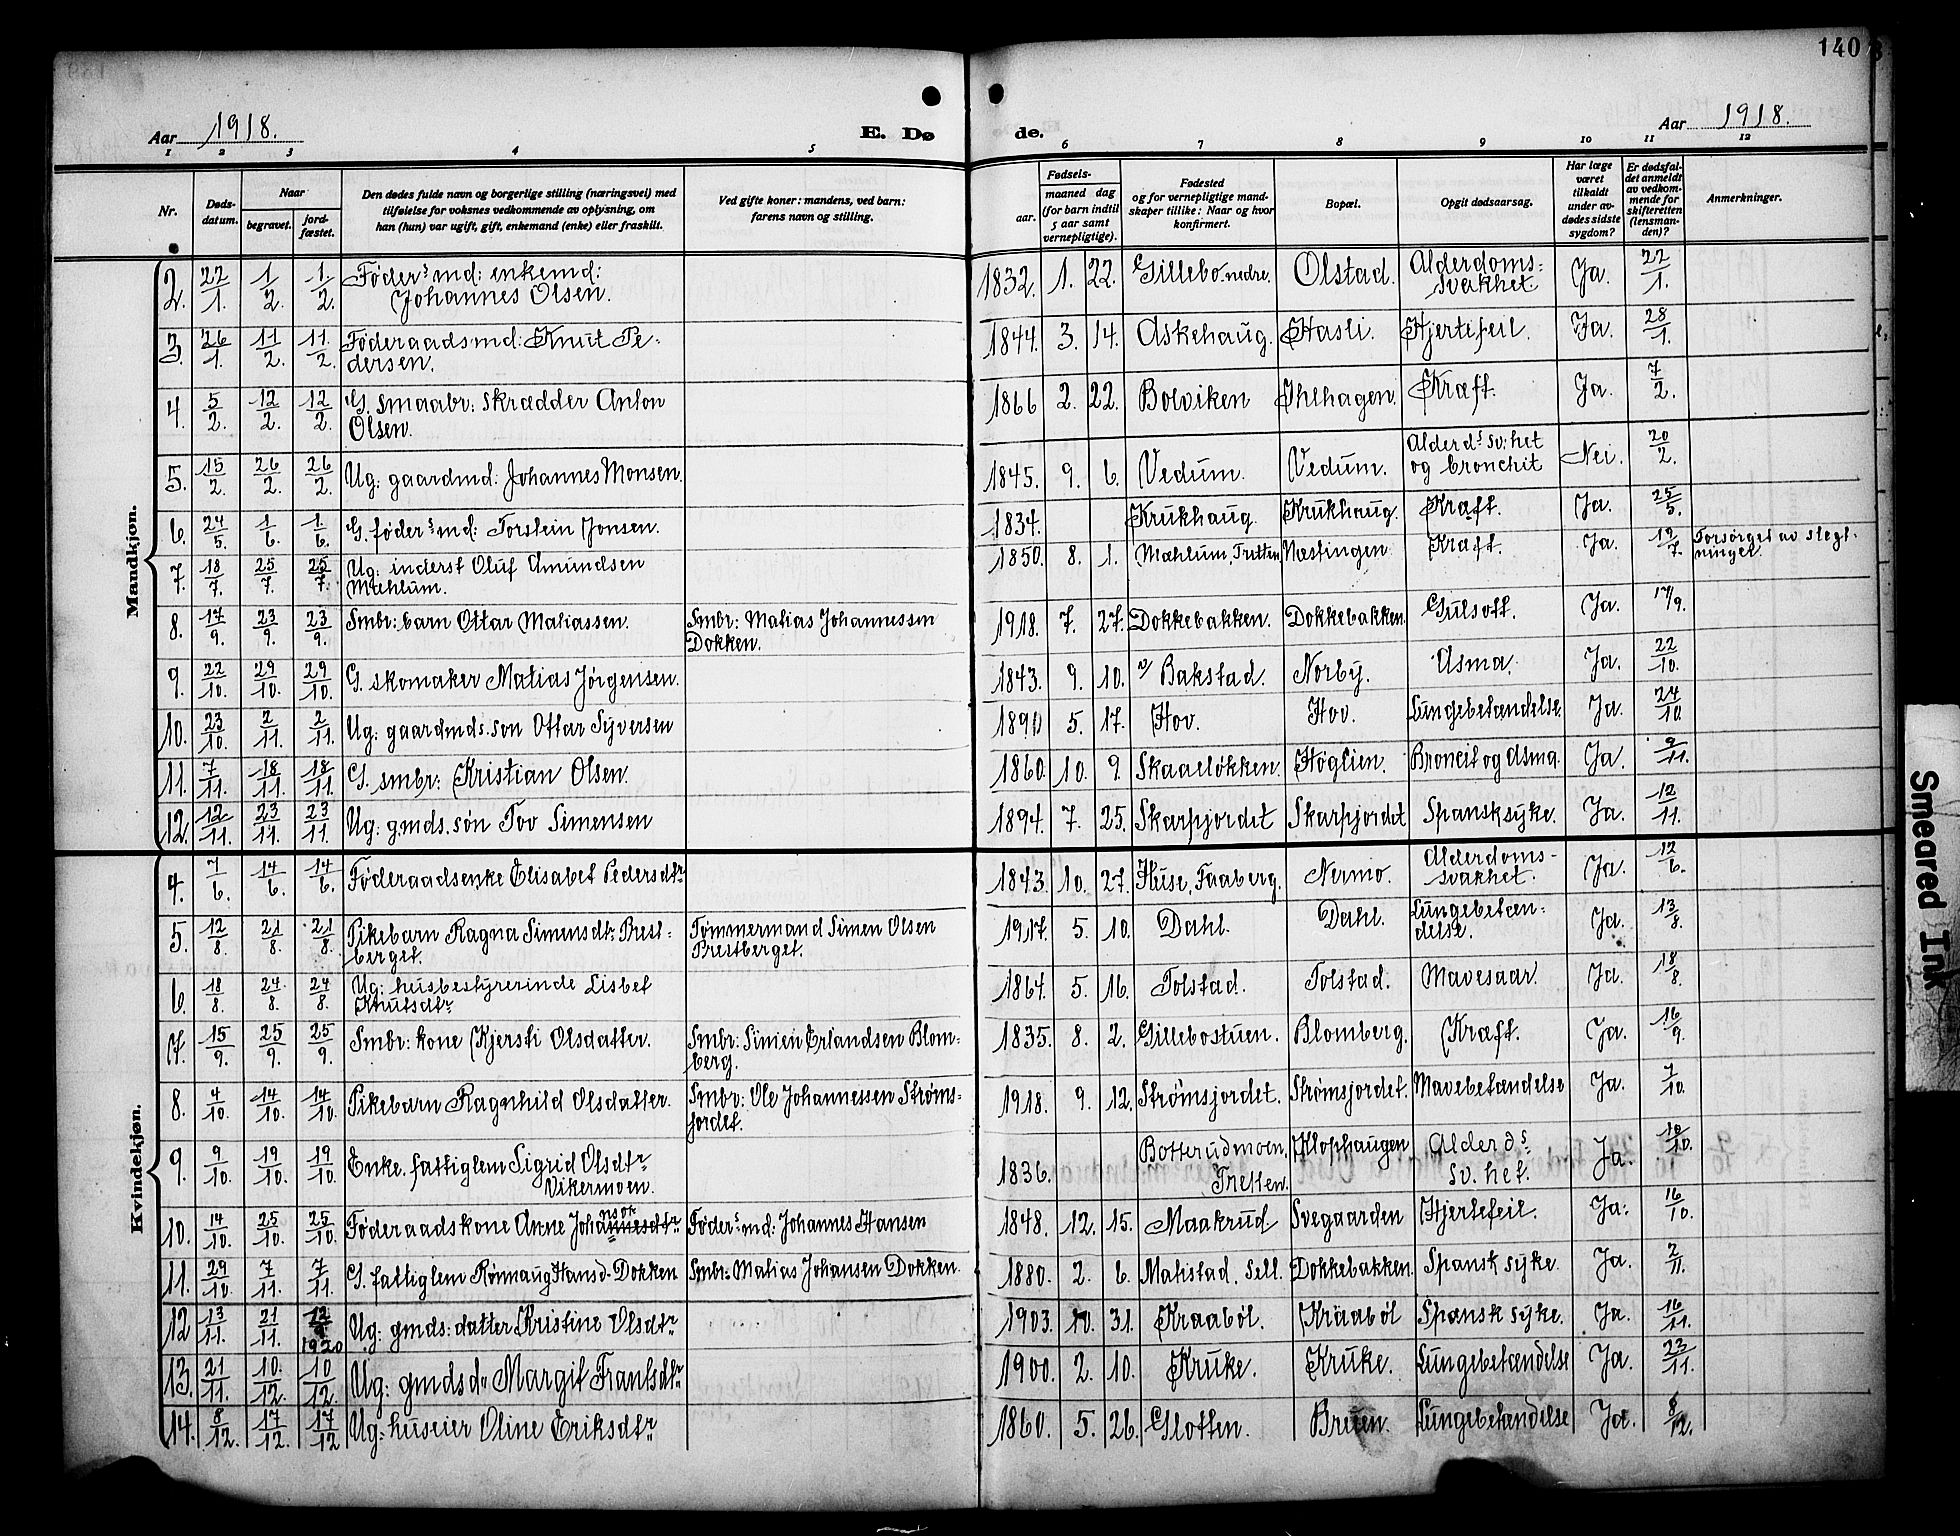 140
Aar 1918.
E. Dø de.
Aar 1918.
1 2 3 4 5 6 7 8 9 10 11 12
Nr.
Døds-
datum.
Naar
begravet.
jord-
fæstet.
Den dødes fulde navn og borgerlige stilling (næringsvei) med
tilføielse for voksnes vedkommende av oplysning, om
han (hun) var ugift, gift, enkemand (enke) eller fraskilt.
Ved gifte koner: mandens, ved barn:
farens navn og stilling.
Fødsels-
aar.
maaned dag
(for barn indtil
5 aar samt
vernepligtige).
Fødested
og for vernepligtige mand-
skaper tillike: Naar og hvor
konfirmert.
Bopæl.
Opgit dødsaarsag.
Har læge
været
tilkaldt
under av-
dødes sidste
sygdom?
Er dødsfal-
det anmeldt
av vedkom-
mende for
skifteretten
(lensman-
den)?
Anmerkninger.
Mandkjøn.
2. 22/1. 1/2. 1/2. Føder.s md: enkemd: 1832. 1. 22. Gillebo nedre. Olstad. Alderdoms- Ja. 22/1.
Johannes Olsen. svakhet.
3. 26/1. 11/2. 11/2. Føderaadsmd: Knut Pe- 1844. 3. 14. Askehaug. Hasli. Hjertefeil. Ja. 28/1.
dersen.
4. 5/2. 12/2. 12/2. G. smaabr: skrædder Anton 1866 2. 22. Bolviken Ihlhagen. Kræft. Ja. 7/2.
Olsen.
5. 15/2. 26/2. 26/2. Ug: gaardmd: Johannes Monsen. 1845. 9. 6. Vedum. Vedum. Alderd.s sv:het Nei. 20/2.
og bronchit
6. 24/5. 1/6. 1/6. G. føder.s md: Torstein Jonsen. 1834. Krukhaug. Krukhaug. Kræft. Ja. 25/5.
7. 18/7. 25/7. 25/7. Ug: inderst Oluf Amundsen 1850. 8. 1. Mæhlum, Tretten Næstingen Kræft. Ja. 19/7. Forsørget av slegt-
Mæhlum. ninger.
8. 17/9. 23/9. 23/9. Smbr: barn Ottar Matiassen. Smbr: Matias Johannessen 1918. 7. 27. Dokkebakken. Dokkebakken. Gulsott. Ja. 17/9.
Dokken.
9. 22/10. 29/10. 29/10. G. skomaker Matias Jørgensen. 1843. 9. 10. v/ Bakstad. Norby. Asma. Ja. 22/10.
10. 23/10. 2/11. 2/11. Ug: gaardmds. søn Ottar Syversen 5. 17. Hov. Hov. Lungebetændelse. Ja. 24/10.
11. 7/11. 18/11. 18/11. G. smbr: Kristian Olsen. 1860. 10. 9. Skaalløkken. Høglien. Broncit og Asma. Ja. 9/11.
12. 12/11. 23/11. 23/11. Ug: gmds. søn Tov Simensen 1894. 7. 25. Skarpjordet Skarpjordet Spansksyke. Ja. 12/11.
Kvindekjøn.
4. 7/6. 14/6. 14/6. Føderaadsenke Elisabet Pedersdtr 1843. 10. 27. Huse, Faaberg. Nermo. Alderdoms- Ja. 12/6.
svakhet.
5. 12/8. 21/8. 21/8. Pikebarn Ragna Simensdtr. Prest- Tømmermand Simen Olsen 1917. 5. 10. Dahl. Dahl. Lungebetæn- Ja. 13/8.
berget. Prestberget. delse.
6 18/8. 24/8. 24/8. Ug: husbestyrerinde Lisbet 1864. 5. 16. Tolstad. Tolstad. Mavesaar. Ja. 18/8.
Knutsdtr.
7. 15/9. 25/9. 25/9. Smbr: kone Kjersti Olsdatter. Smbr: Simen Erlandsen Blom- 1835. 8. 2. Gillebostuen. Blomberg. Kræft. Ja. 16/9.
berg.
8. 4/10. 14/10. 14/10. Pikebarn Ragnhild Olsdatter. Smbr: Ole Johannessen Strøms- 1918. 9. 12. Strømsjordet. Strømsjordet. Mavebetændelse Ja. 7/10.
jordet.
9. 9/10. 19/10. 19/10. Enke. fattiglem Sigrid Olsdtr 1836. Botterudmoen, Klophaugen Alderd.s Ja. 10/10.
Vikermoen. Tretten. sv. het.
10. 14/10. 25/10. 25/10. Føderaadskone Anne Johannesdtr Føder.s md: Johannes Hansen 1848. 12. 15. Maakrud Svegaarden Hjertefeil. Ja. 16/10.
11. 29/10. 7/11. 7/11. G. fattiglem Rønnaug Hansd. Dokken Smbr: Matias Johansen Dokken. 1880. 2. 6. Matistad. Sell. Dokkebakken. Spansk syke. Ja. 2/11.
12 13/11. 21/11. 1920 Ug: gmds: datter Kristine Olsdtr 1903. 10. 31. Kraabøl. Kraabøl Spansk syke. Ja. 16/11.
13. 21/11. 10/12. 10/12. Ug: gmdsd. Margit Frantsdtr 1900. 2. 10. Kruke. Kruke. Lungebetændelse Ja. 23/11.
14. 8/12. 17/12. 17/12 Ug: huseier Oline Eriksdtr 1860. 5. 26. Glotten. Bruen. Lungebetændelse Ja. 8/12.
Smeared Ink